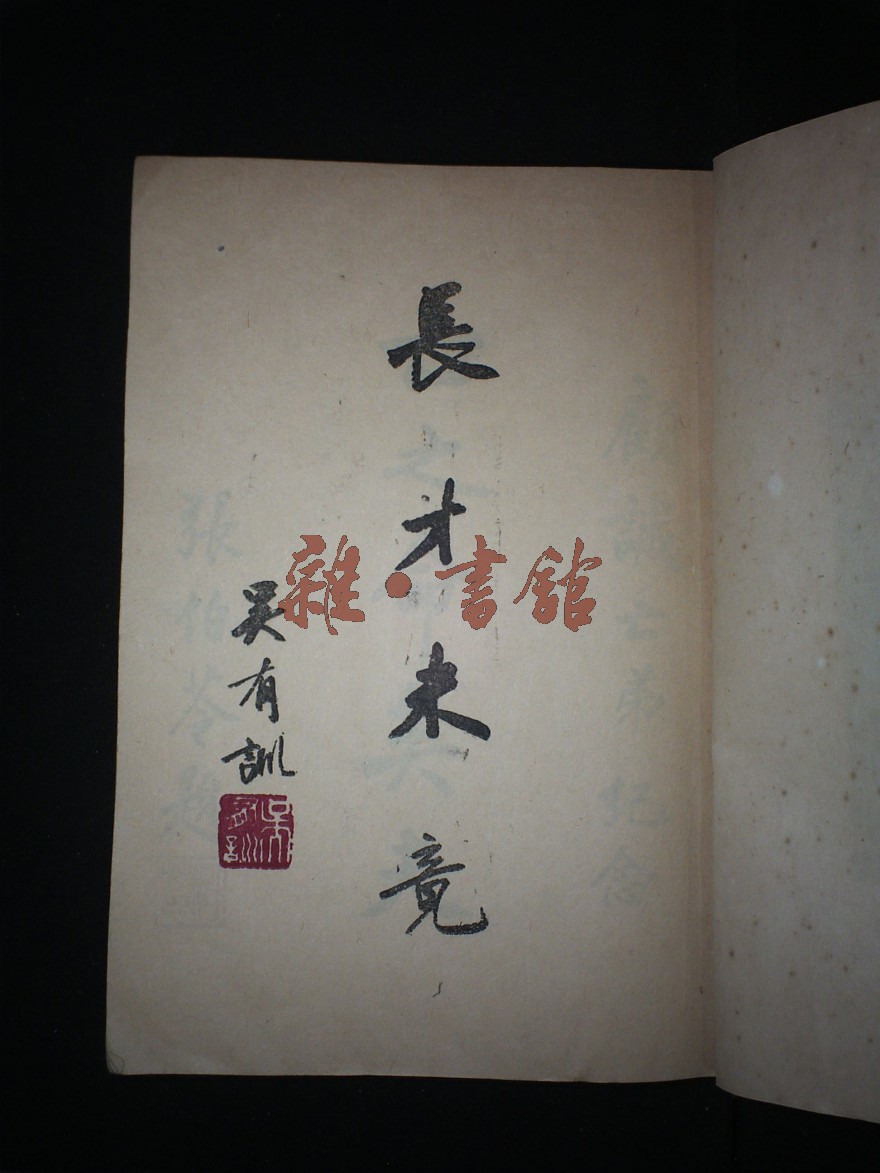 長才未竟
吳有訓
吳有訓
雜·書館